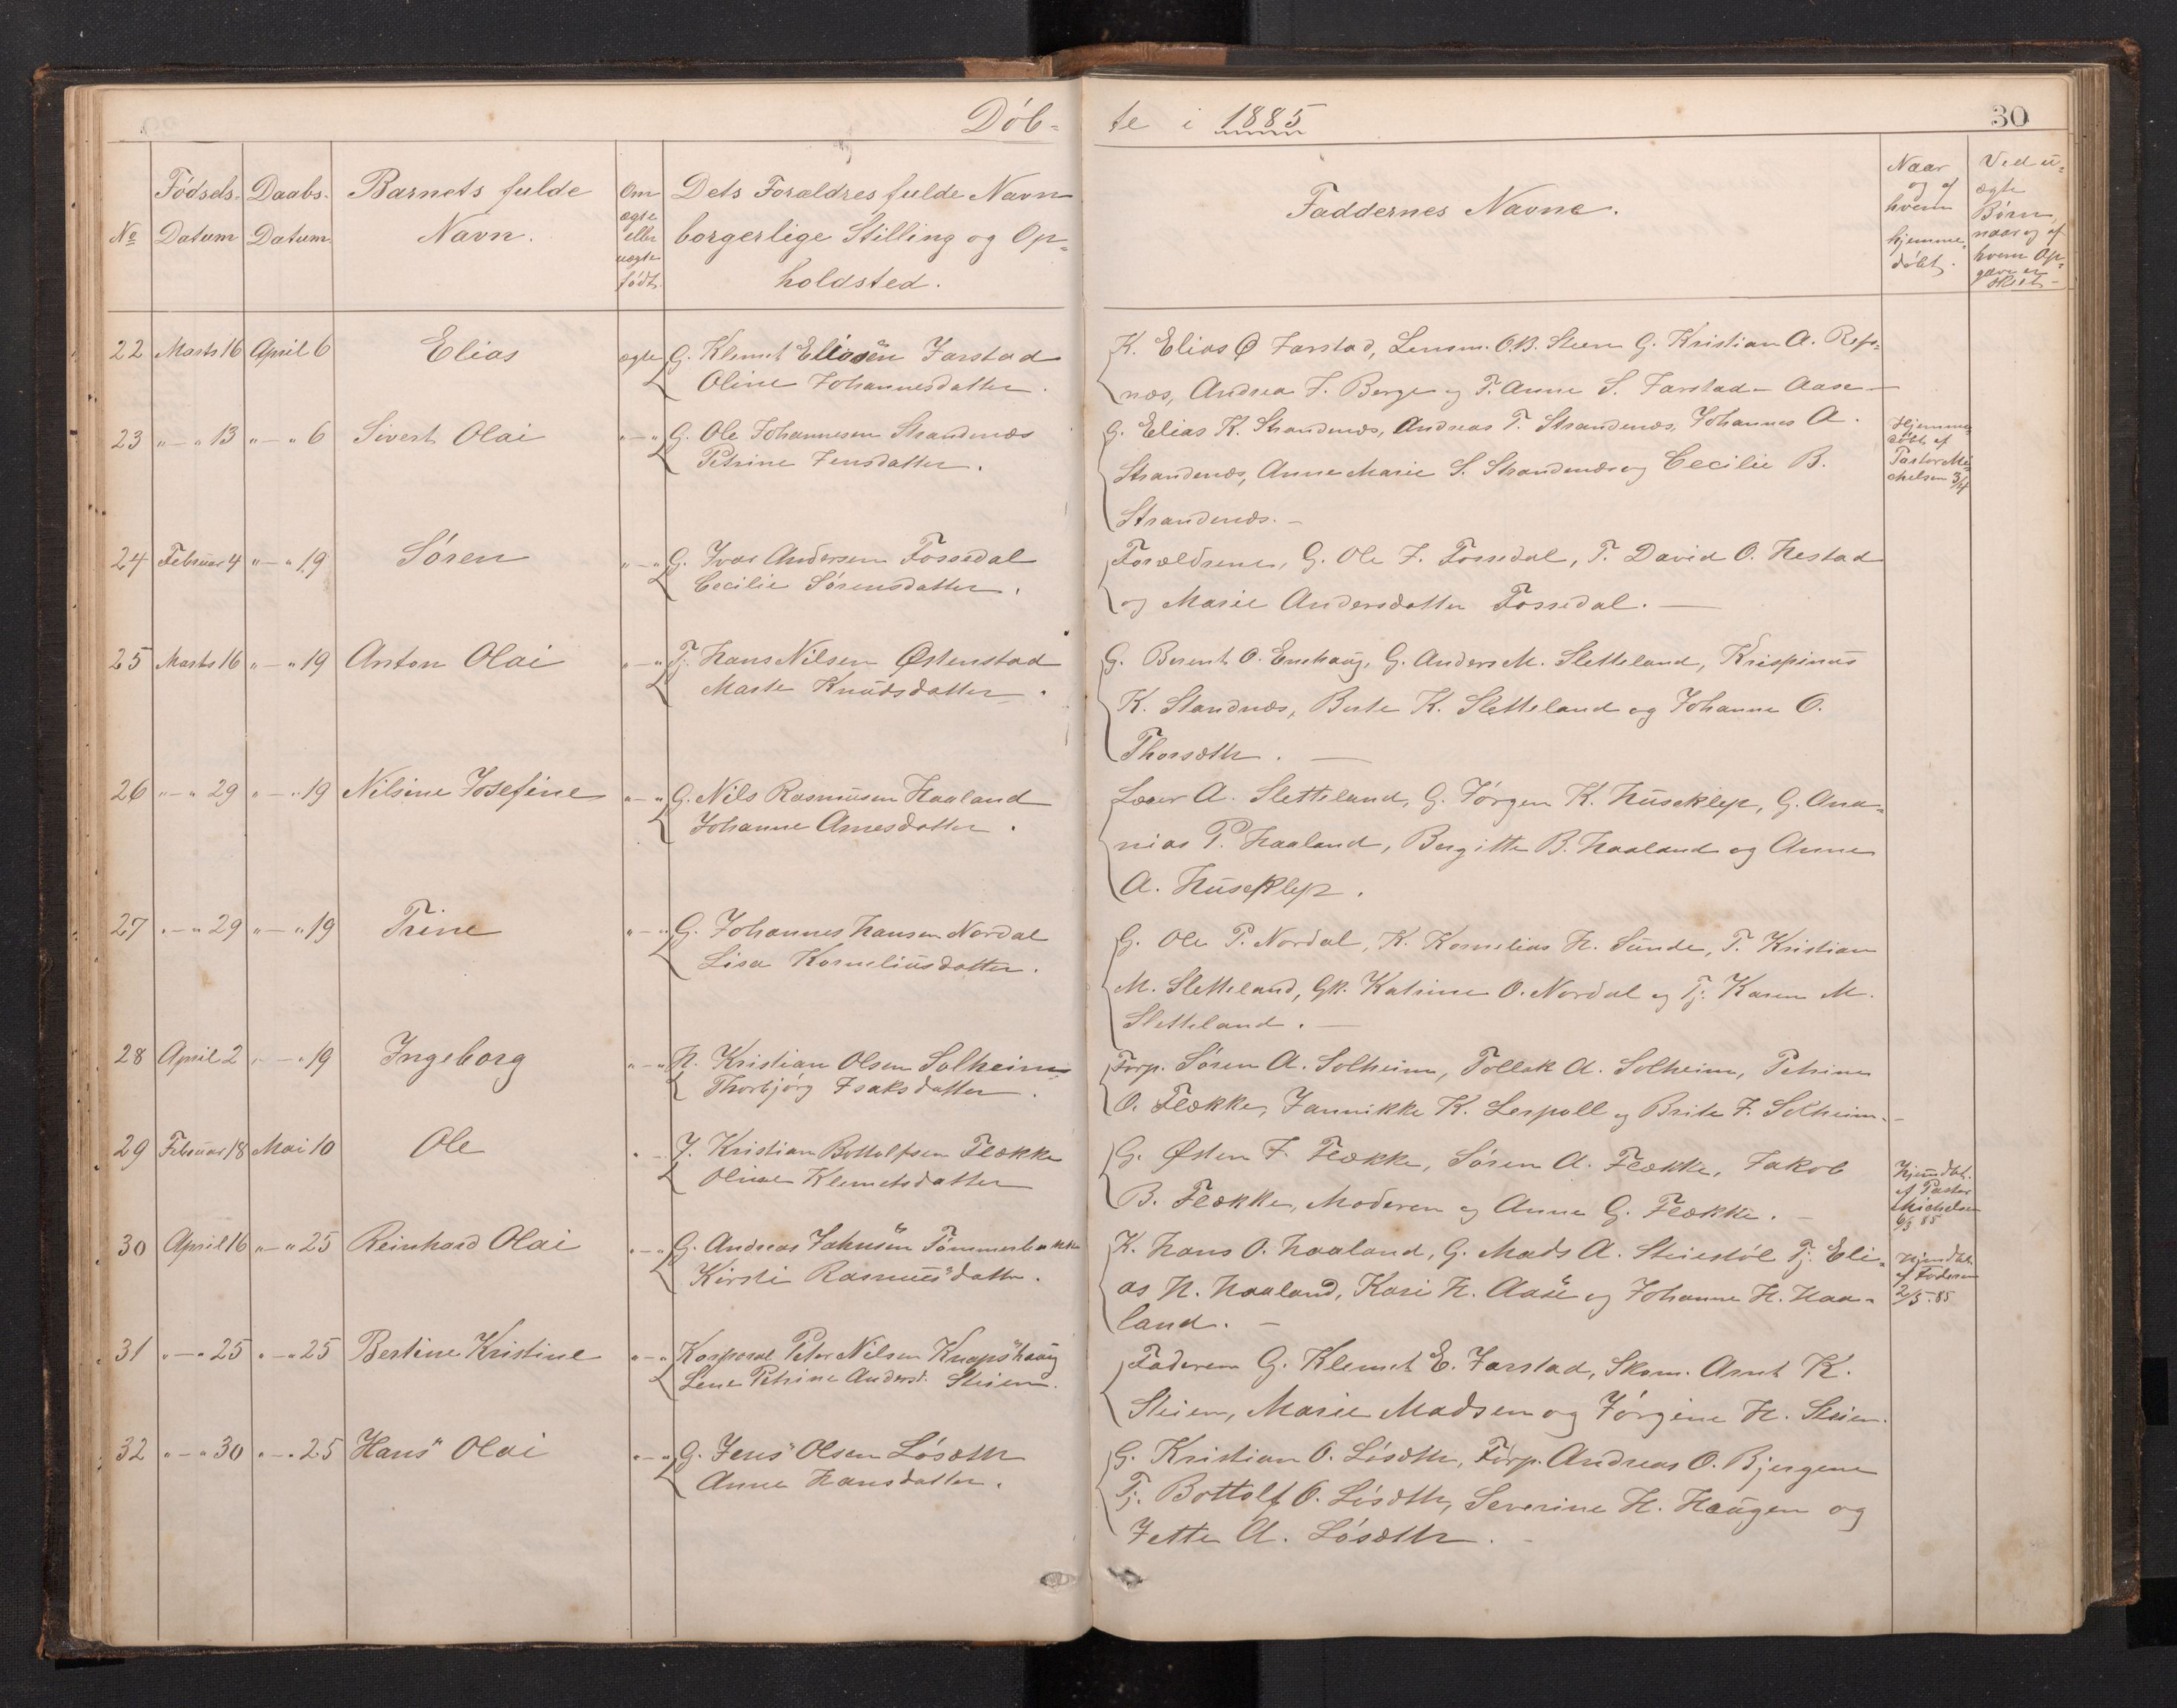 Døb-te i 1885
30
No
Fødsels-Datum
Daabs-Datum
Barnets fulde Navn.
Om ægte eller uægte født.
Dets Forældres fulde Navn
borgerlige Stilling og Op-
holdsted.
Faddernes Navne.
Naar og af hvem hjemme-døbt.
Ved u-ægte Børn, naar og af hvem Op-gave er skeet
22 Marts 16 April 6 Elias ægte G. Klemet Eliasen Farstad
Oline Johannesdatter.
K. Elias Ø Farstad, Lensm. O.B. Steen G. Kristian A. Refs-
næs, Andrea J. Berge og P. Anne S. Farstad - Aase
23 "-" 13 "-" 6 Sivert Olai "-" G. Ole Johannesen Strandenæs
Petrine Jensdatter.
G. Elias K. Strandenæs, Andreas T. Strandenæs, Johannes A.
Strandenæs, Anne Marie S. Strandenæs og Cecilie B.
Strandenæs. -
Hjemme-
døbt af
Pastor Mi-
chelsen 3/4
24 Februar 4 "-" 19 Søren "-" G. Ivar Andersen Fossedal
Cecilie Sørensdatter.
Forældrene, G. Ole J. Fossedal, P. David O. Hestad
og Marie Andersdatter Fossedal. -
25 Marts 16 "-" 19 Anton Olai "-" Tj. Hans Nilsen Østenstad
Marte Knudsdatter.
G. Berent O. Emhaug, G. Anders M. Sletteland, Krispinus
K. Standnæs, Berte K. Sletteland og Johanne O.
Thorsæth. -
26 "-" 29 "-" 19 Nilsine Josefine "-" G. Nils Rasmusen Haaland
Johanne Arnesdatter.
Lærer A. Sletteland, G. Jørgen K. Huseklep, G. Ana-
nias P. Haaland, Bergitte B. Haaland og Anne
A. Huseklep.
27 "-" 29 "-" 19 Trine "-" G. Johannes Hansen Nordal
Lisa Korneliusdatter.
G. Ole P. Nordal, K. Kornelius H. Sunde, P. Kristian
M. Sletteland, Gk. Katrine O. Nordal og Tj. Karen M.
Sletteland. -
28 April 2 "-" 19 Ingeborg "-" H. Kristian Olsen Solheim
Thorbjørg Isaksdatter.
Forp. Søren A. Solheim, Tollak A. Solheim, Petrine
O. Flække, Jannikke K. Lerpoll og Brite J. Solheim. -
29 Februar 18 Mai 10 Ole "-" J. Kristian Bottolfsen Flække
Oline Klemetsdatter
G. Østen J. Flække, Søren A. Flække, Jakob
B. Flække, Moderen og Anne G. Flække. -
Hjemdbt.
af Pastor
Michelsen
6/3 85
30 April 16 "-" 25 Reinhard Olai "-" G. Andreas Jahnsen Tømmerbakke
Kirsti Rasmusdatter.
K. Hans O. Haaland, G. Mads A. Steiestøl Tj. Eli-
as N. Haaland, Kari H. Aase og Johanne H. Haa-
land. -
Hjemdbt.
af Faderen
2/5. 85
31 "-" 25 "-" 25 Bertine Kristine "-" Korporal Peter Nilsen Knapshaug
Lene Petrine Andersd. Steien.
Faderen G. Klemet E. Farstad, Skom. Arnt K.
Steien, Marie Madsen og Jørgine H. Steien.
32 "-" 30 "-" 25 Hans Olai "-" G. Jens Olsen Løsæth
Anne Hansdatter.
G. Kristian O. Løsæth, Forp. Andreas O. Bjergene
Tj. Bottolf O. Løsæth, Severine H. Haugen og
Jette A. Løsæth. -